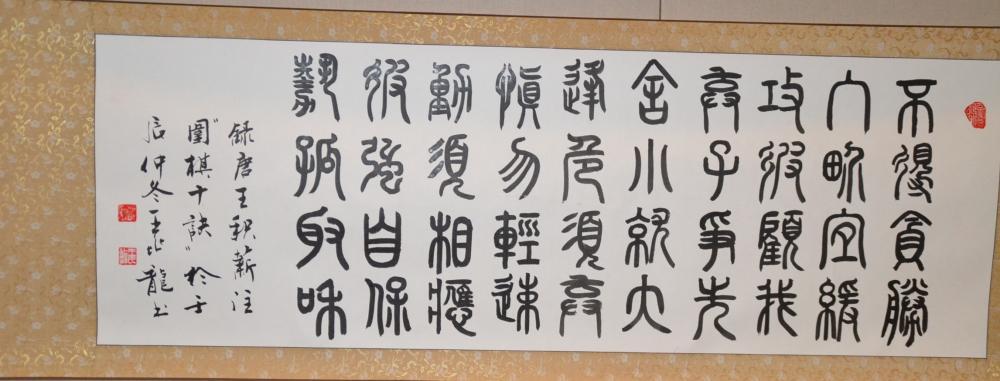 不得貪勝
入界宜緩
攻彼顧我
棄子爭先
舍小就大
逢危須棄
慎勿輕速
動須相應
彼強自保
勢孤取和
録唐王积薪注
"圍棋十訣"於壬
辰仲冬王龍书